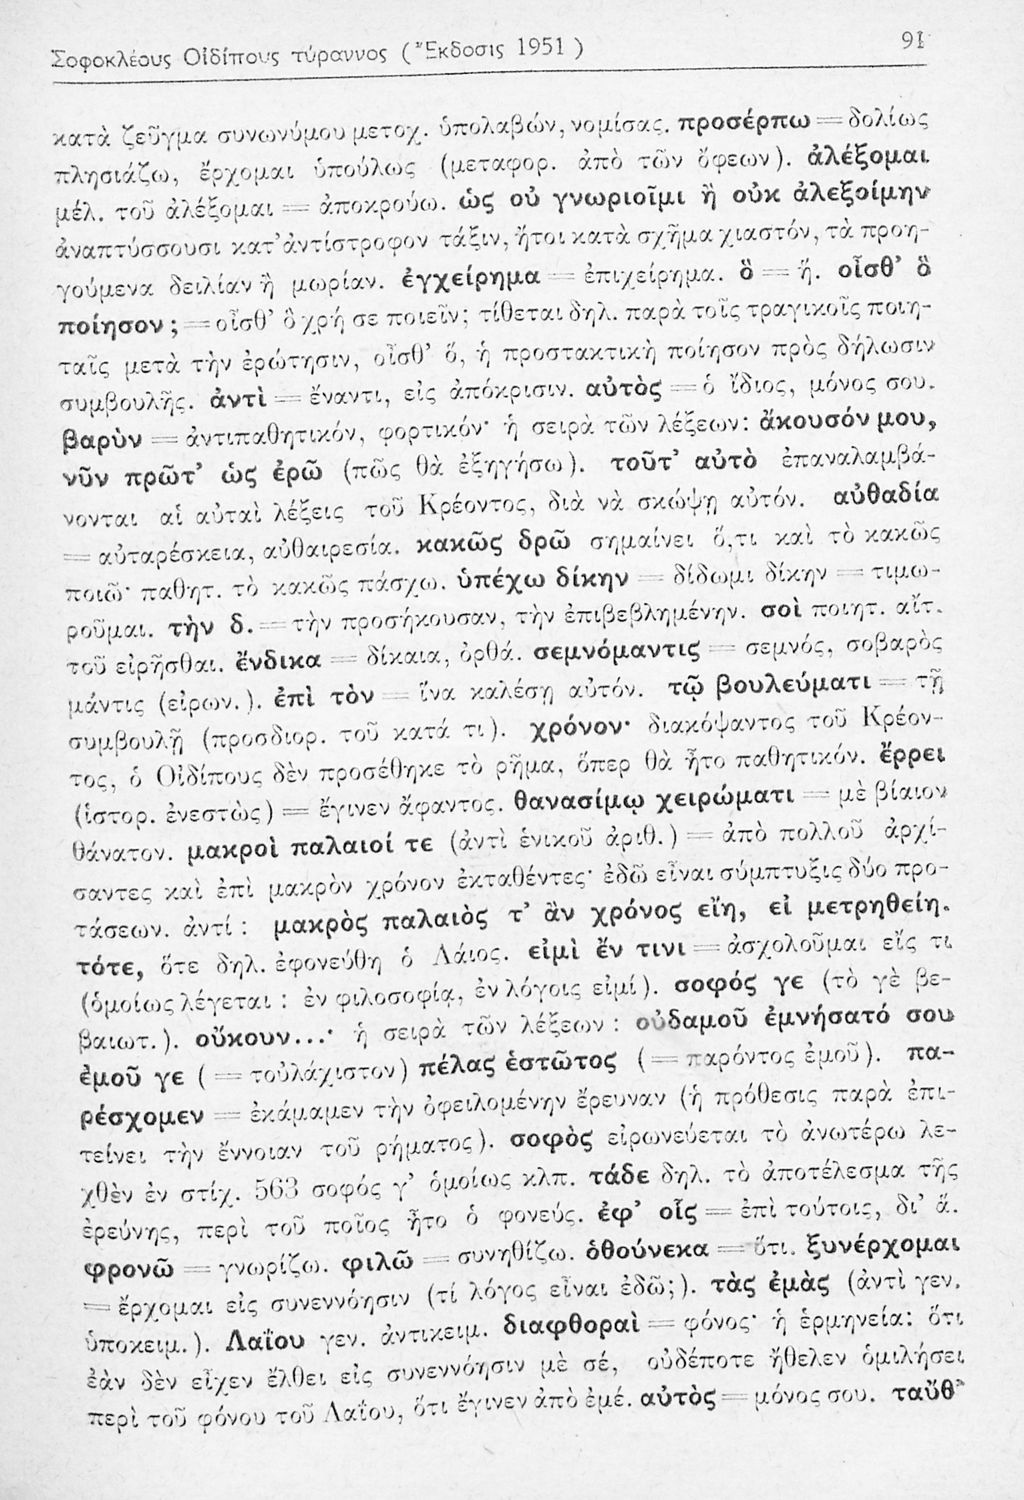 Σοφοκλέους Οἰδίπους τύραννος ( Ἔκδοσις 1951 ) 91
κατὰ ζεῦγμα συνωνύμου μετοχ. ὑπολαβών, νομίσας. προσέρπω = δολίως
πλησιάζω, ἔρχομαι ὑπούλως (μεταφορ. ἀπὸ τῶν ὄφεων). ἀλέξομαι
μέλ. τοῦ ἀλέξομαι = ἀποκρούω. ὡς οὐ γνωριοῖμι ἢ οὐκ ἀλεξοίμην
ἀναπτύσσουσι κατ’ ἀντίστροφον τάξιν, ἤτοι κατὰ σχῆμα χιαστόν, τὰ προη-
γούμενα δειλίαν ἢ μωρίαν. ἐγχείρημα = ἐπιχείρημα. ὃ = ἥ. οἶσθ’ ὃ
ποίησον ; = οἶσθ’ ὃ χρή σε ποιεῖν; τίθεται δηλ. παρὰ τοῖς τραγικοῖς ποιη-
ταῖς μετὰ τὴν ἐρώτησιν, οἶσθ’ ὅ, ἡ προστακτικὴ ποίησον πρὸς δήλωσιν
συμβουλῆς. ἀντὶ = ἔναντι, εἰς ἀπόκρισιν. αὐτὸς = ὁ ἴδιος, μόνος σου.
βαρὺν = ἀντιπαθητικόν, φορτικόν· ἡ σειρὰ τῶν λέξεων: ἄκουσόν μου,
νῦν πρῶτ’ ὡς ἐρῶ (πῶς θὰ ἐξηγήσω). τοῦτ’ αὐτὸ ἐπαναλαμβά-
νονται αἱ αὐταὶ λέξεις τοῦ Κρέοντος, διὰ νὰ σκώψῃ αὐτόν. αὐθαδία
= αὐταρέσκεια, αὐθαιρεσία. κακῶς δρῶ σημαίνει ὅ,τι καὶ τὸ κακῶς
ποιῶ· παθητ. τὸ κακῶς πάσχω. ὑπέχω δίκην = δίδωμι δίκην = τιμω-
ροῦμαι. τὴν δ. = τὴν προσήκουσαν, τὴν ἐπιβεβλημένην. σοὶ ποιητ. αἴτ.
τοῦ εἰρῆσθαι. ἔνδικα = δίκαια, ὀρθά. σεμνόμαντις = σεμνός, σοβαρὸς
μάντις (εἰρων.). ἐπὶ τὸν = ἵνα καλέσῃ αὐτόν. τῷ βουλεύματι = τῇ
συμβουλῇ (προσδιορ. τοῦ κατά τι). χρόνον· διακόψαντος τοῦ Κρέον-
τος, ὁ Οἰδίπους δὲν προσέθηκε τὸ ρῆμα, ὅπερ θὰ ἦτο παθητικόν. ἔρρει
(ἱστορ. ἐνεστὼς) = ἔγινεν ἄφαντος. θανασίμῳ χειρώματι = μὲ βίαιον
θάνατον. μακροὶ παλαιοί τε (ἀντὶ ἑνικοῦ ἀριθ.) = ἀπὸ πολλοῦ ἀρχί-
σαντες καὶ ἐπὶ μακρὸν χρόνον ἐκταθέντες· ἐδῶ εἶναι σύμπτυξις δύο προ-
τάσεων. ἀντί : μακρὸς παλαιὸς τ’ ἂν χρόνος εἴη, εἰ μετρηθείη.
τότε, ὅτε δηλ. ἐφονεύθη ὁ Λάιος. εἰμὶ ἔν τινι = ἀσχολοῦμαι εἴς τι
(ὁμοίως λέγεται : ἐν φιλοσοφίᾳ, ἐν λόγοις εἰμί). σοφός γε (τὸ γὲ βε-
βαιωτ.). οὔκουν...· ἡ σειρὰ τῶν λέξεων : οὐδαμοῦ ἐμνήσατό σου
ἐμοῦ γε ( = τοὐλάχιστον) πέλας ἑστῶτος ( = παρόντος ἐμοῦ). πα-
ρέσχομεν = ἐκάμαμεν τὴν ὀφειλομένην ἔρευναν (ἡ πρόθεσις παρὰ ἐπι-
τείνει τὴν ἔννοιαν τοῦ ρήματος). σοφὸς εἰρωνεύεται τὸ ἀνωτέρω λε-
χθὲν ἐν στίχ. 563 σοφός γ’ ὁμοίως κλπ. τάδε δηλ. τὸ ἀποτέλεσμα τῆς
ἐρεύνης, περὶ τοῦ ποῖος ἦτο ὁ φονεύς. ἐφ’ οἷς = ἐπὶ τούτοις, δι’ ἅ.
φρονῶ = γνωρίζω. φιλῶ = συνηθίζω. ὁθούνεκα = ὅτι. ξυνέρχομαι
= ἔρχομαι εἰς συνεννόησιν (τί λόγος εἶναι ἐδῶ;). τὰς ἐμὰς (ἀντὶ γεν.
ὑποκειμ.). Λαΐου γεν. ἀντικειμ. διαφθοραὶ = φόνος· ἡ ἑρμηνεία: ὅτι
ἐὰν δὲν εἶχεν ἔλθει εἰς συνεννόησιν μὲ σέ, οὐδέποτε ἤθελεν ὁμιλήσει
περὶ τοῦ φόνου τοῦ Λαΐου, ὅτι ἔγινεν ἀπὸ ἐμέ. αὐτὸς = μόνος σου. ταὔθ’